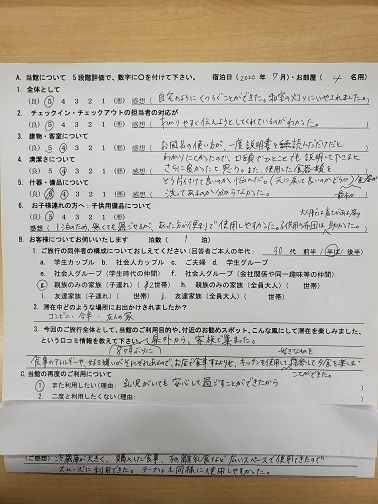 A. 当館について 5段階評価で、数字に○を付けて下さい。 宿泊日(2020 年 7月)・お部屋( 4 名用)
1. 全体として
(良) 5 4 3 2 1 (悪) 感想( 自宅のようにくつろぐことができた。和室の灯りにいやされました。)
2. チェックイン・チェックアウトの担当者の対応が
(良) 5 4 3 2 1 (悪) 感想( わかりやすく伝えようとしてくれているのがわかった。 )
3. 建物・客室について
(良) 5 4 3 2 1 (悪) 感想( お風呂の使い方が、一度説明書を読んだだけだと
4. 清潔さについて わかりにくかったので、口頭でもっとここでも説明して下さると
(良) 5 4 3 2 1 (悪) 感想( さらに良かったと思う。また、使用した食器類を
5. 什器・備品について どう片付けて良いのか
(良) 5 4 3 2 1 (悪) 感想( 洗ってあるのか分からなかった。
6. お子様連れの方へ:子供用備品について
(良) 5 4 3 2 1 (悪)
感想( 1泊のため、無くても過ごせるが、あった方が便利で使用しやすかった。
B. お客様についてお伺いいたします 泊数( 1 泊)
1. ご旅行の同伴者の構成についておしえてください(回答者ご本人の年代 30 代 前半/中ば/後半)
a. 学生カップル b. 社会人カップル c. ご夫婦 d. 学生グループ
e. 社会人グループ(学生時代の仲間) f. 社会人グループ(会社関係や同一趣味等の仲間)
g. 親族のみのご家族(子連れ)( 2世帯) h. 親族のみのご家族(全員大人)( 世帯)
i. 友達家族(子連れ)( 世帯) j. 友達家族(全員大人)( 世帯)
2. 滞在中どのような場所にお出かけされましたか?
コンビニ・
3. 今回のご旅行全体として、当館のご利用目的や、付近のお勧めスポット、こんな風にして滞在を楽しみました、
という口コミ情報を教えて下さい 県外から、家族で集まった。
食事のアレルギーや、好き嫌いがそれぞれあるので、お店で食事するよりも、キッチンを使用して
ことができた。
C. 当館の再度のご利用について
1. また利用したい(理由: 乳児がいても安心して過ごすことができたから )
2. 二度と利用したくない(理由:
(ご感想) 冷蔵庫が大きく、購入した食事、子の離乳食など広いスペースで使用できたので
スムーズに利用できた。テーブルも同様に使用しやすかった。